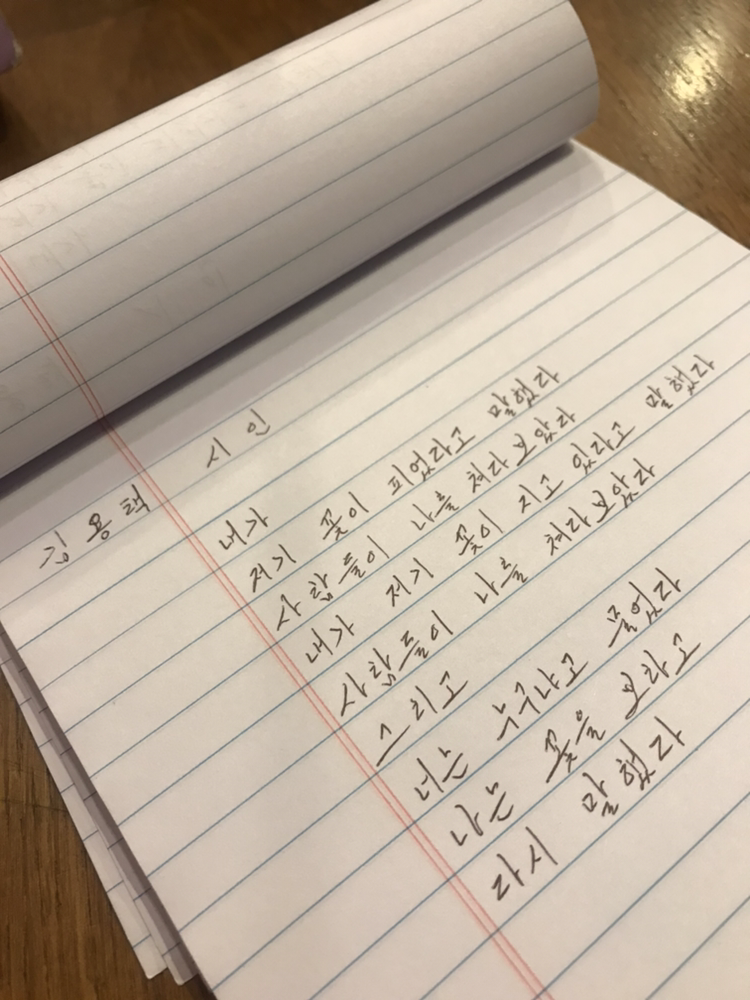 시인
김용택
내가
저기 꽃이 피었다고 말했다
사람들이 나를 쳐다보았다
내가 저기 꽃이 지고 있다고 말했다
사람들이 나를 쳐다보았다
그리고
너는 누구냐고 물었다
나는 꽃을 보라고
다시 말했다